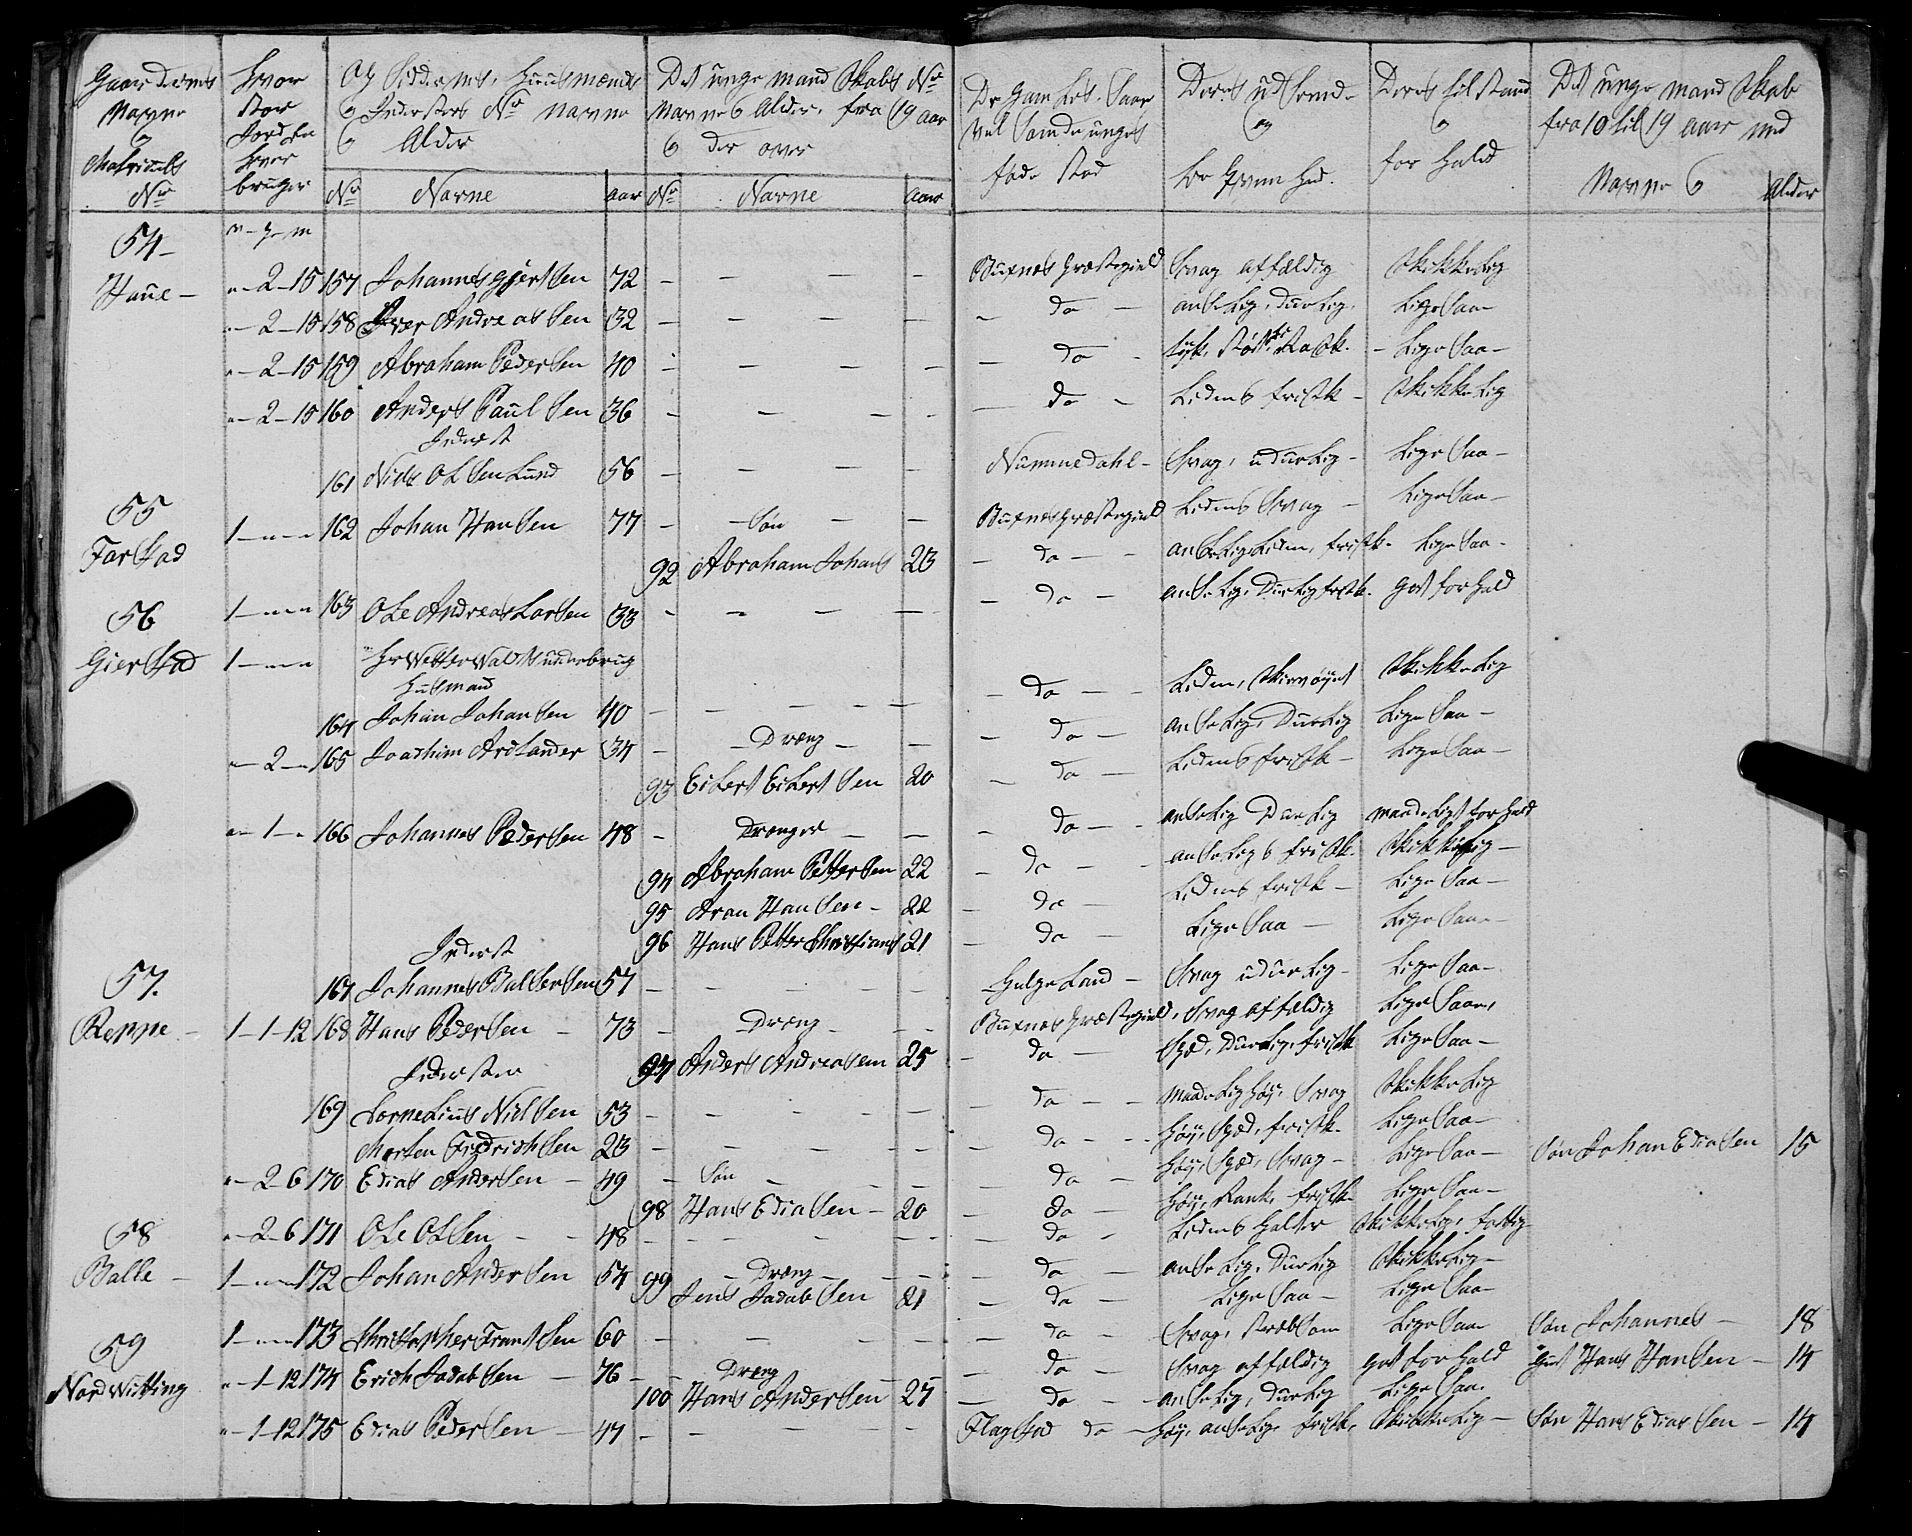 Gaardernes Navne & Matriculs No
Hvor stor Jord En hver bruger
Opsiddernes, Huusmænds & Inderster No navne & Alder
Det unge mandskabs No navne & Alder, fra 19 aar & der over
De Gamles, Saavel Som de ungesføde stæd
Deres udseende og beqvemhed.
Deres tilstand & forhold
Det unge mandskab fra 10 til 19 aar med
No Navne aar No Navne aar Navne & Alder
54 - "-7-m
Haue - "-2-15 157 Johannes Gjertsen 72 - - - - Buxnes Præstegield Svag affældig Skikkelig
"-2-15 158 Iver Andreassen 32 - - - - do - anselig, Durlig. Lige Saa
"-2-15 159 Abraham Pedersen 40 - - - - do - tyk, stærk, Rask. - Lige Saa -
"-2-15 160 Anders Paulsen 36 - - - - do - Liden & frisk - Skikkelig
Inderst
161 Niels Olsen Lund 56 - - - - Nummedahl - Svag, udurlig - Lige Saa -
55 1-"-" 162 Johan Hansen 77 - - Søn - - Buxnes Præstegield Liden & Svag - Lige Saa -
Farstad 92 Abraham Johans 23 - do - - anselig Liden, frisk - Lige Saa -
56 1-"-" 163 Ole Andreas Larsen 33 - - - - do - anselig, Durlig frisk. godt forhold
Gierstad 1-"-" Hr Wetterwaldts underbrug
Husmand
164 Johan Johansen 40 - - - - do - - Liden, Skievøyet Skikkelig
"-2-" 165 Joachim Arctander 34 - - Dræng - - do - anselig, Durlig Lige Saa -
93 Eilert Eilertsen 20 - do - Liden & frisk - Lige Saa -
"-1-" 166 Johannes Pedersen 48 - Drænger - - do - - anselig Durlig maadeligt forhold
94 Abraham Pettersen 22 - do - anselig & frisk. Skikkelig -
95 Aron Hansen - 22 - do - Liden & frisk - Lige Saa -
96 Hans Petter Christians 21 - do - Lige Saa - Lige Saa -
Inderst
57. 167 Johannes Balsersen 57 - - - - Helgeland - Svag udurlig - Lige Saa -
Reppe - 1-1-12 168 Hans Pedersen - 73 - Dræng - - Buxnes Præstegield, Svag affældig Lige Saa,
97 Anders Andreasen 25 - do - Spæd, Durlig, frisk Lige Saa -
Inderster
169 Cornelius Nielsen 53 - - - - do - - maadelig høy, Svag Skikkelig
Morten Fredrichsen 23 - - - - do - - - høy, Spæd, frisk. Lige Saa -
"-2-6 170 Edias Andersen - 49 - Søn - - do - høy, Spæd, Svag - Lige Saa - Søn Johan Ediasen 15
98 Hans Ediasen - 20 - do - høy, Rank, frisk - Lige Saa -
58 "-2-6 171 Ole Olsen - - 48 - - - - do - Liden & halter Skikkelig, fattig
Balle - 1-"-" 172 Johan Andersen 54 - Dræng - - do - anselig, Durlig Skikkelig -
99 Jens Jacobsen 21 - do - Lige Saa - Lige Saa -
1-"-" 173 Christopher Frantsen 60 - - - - do - Svag, stræbsom Lige Saa Søn Johannes - 18
59 "-1-12 174 Erich Jacobsen - 76 - Dræng - - do - Svag affældig godt forhold Gut Hans Hansen - 14
Nordwutting 100 Hans Andersen 27 - do - anselig, durlig Lige Saa.
"-1-12 175 Edias Pedersen - 47 - - - - Flagstad do - høy, anselig frisk, Skikkelig - Søn Hans Ediassen - 14